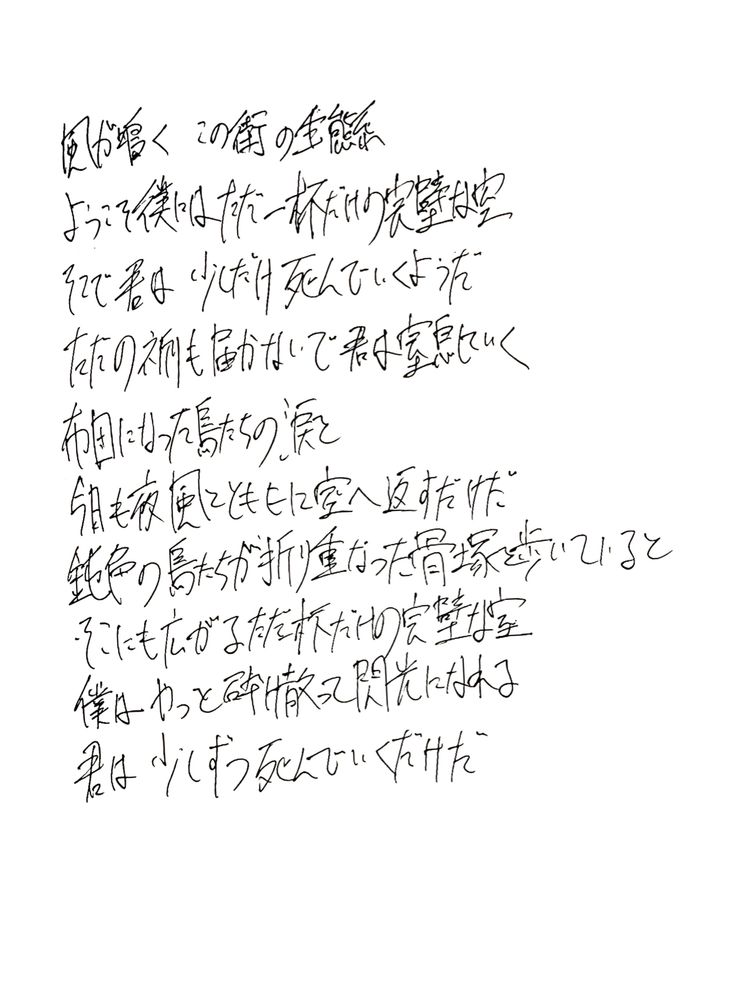 風が鳴く この街の生態系
ようこそ僕にはただ一杯だけの完璧な空
そこで君は 少しだけ 死んでいくようだ
ただの祈りも届かないで君は窒息していく
布団になった鳥たちの涙と
今日も夜風とともに空へ返すだけだ
鈍色の鳥たちが折り重なった骨塚を歩いていると
そこにも広がるただ一杯だけの完璧な空
僕は やっと砕け散って閃光になれる
君は 少しずつ死んでいくだけだ